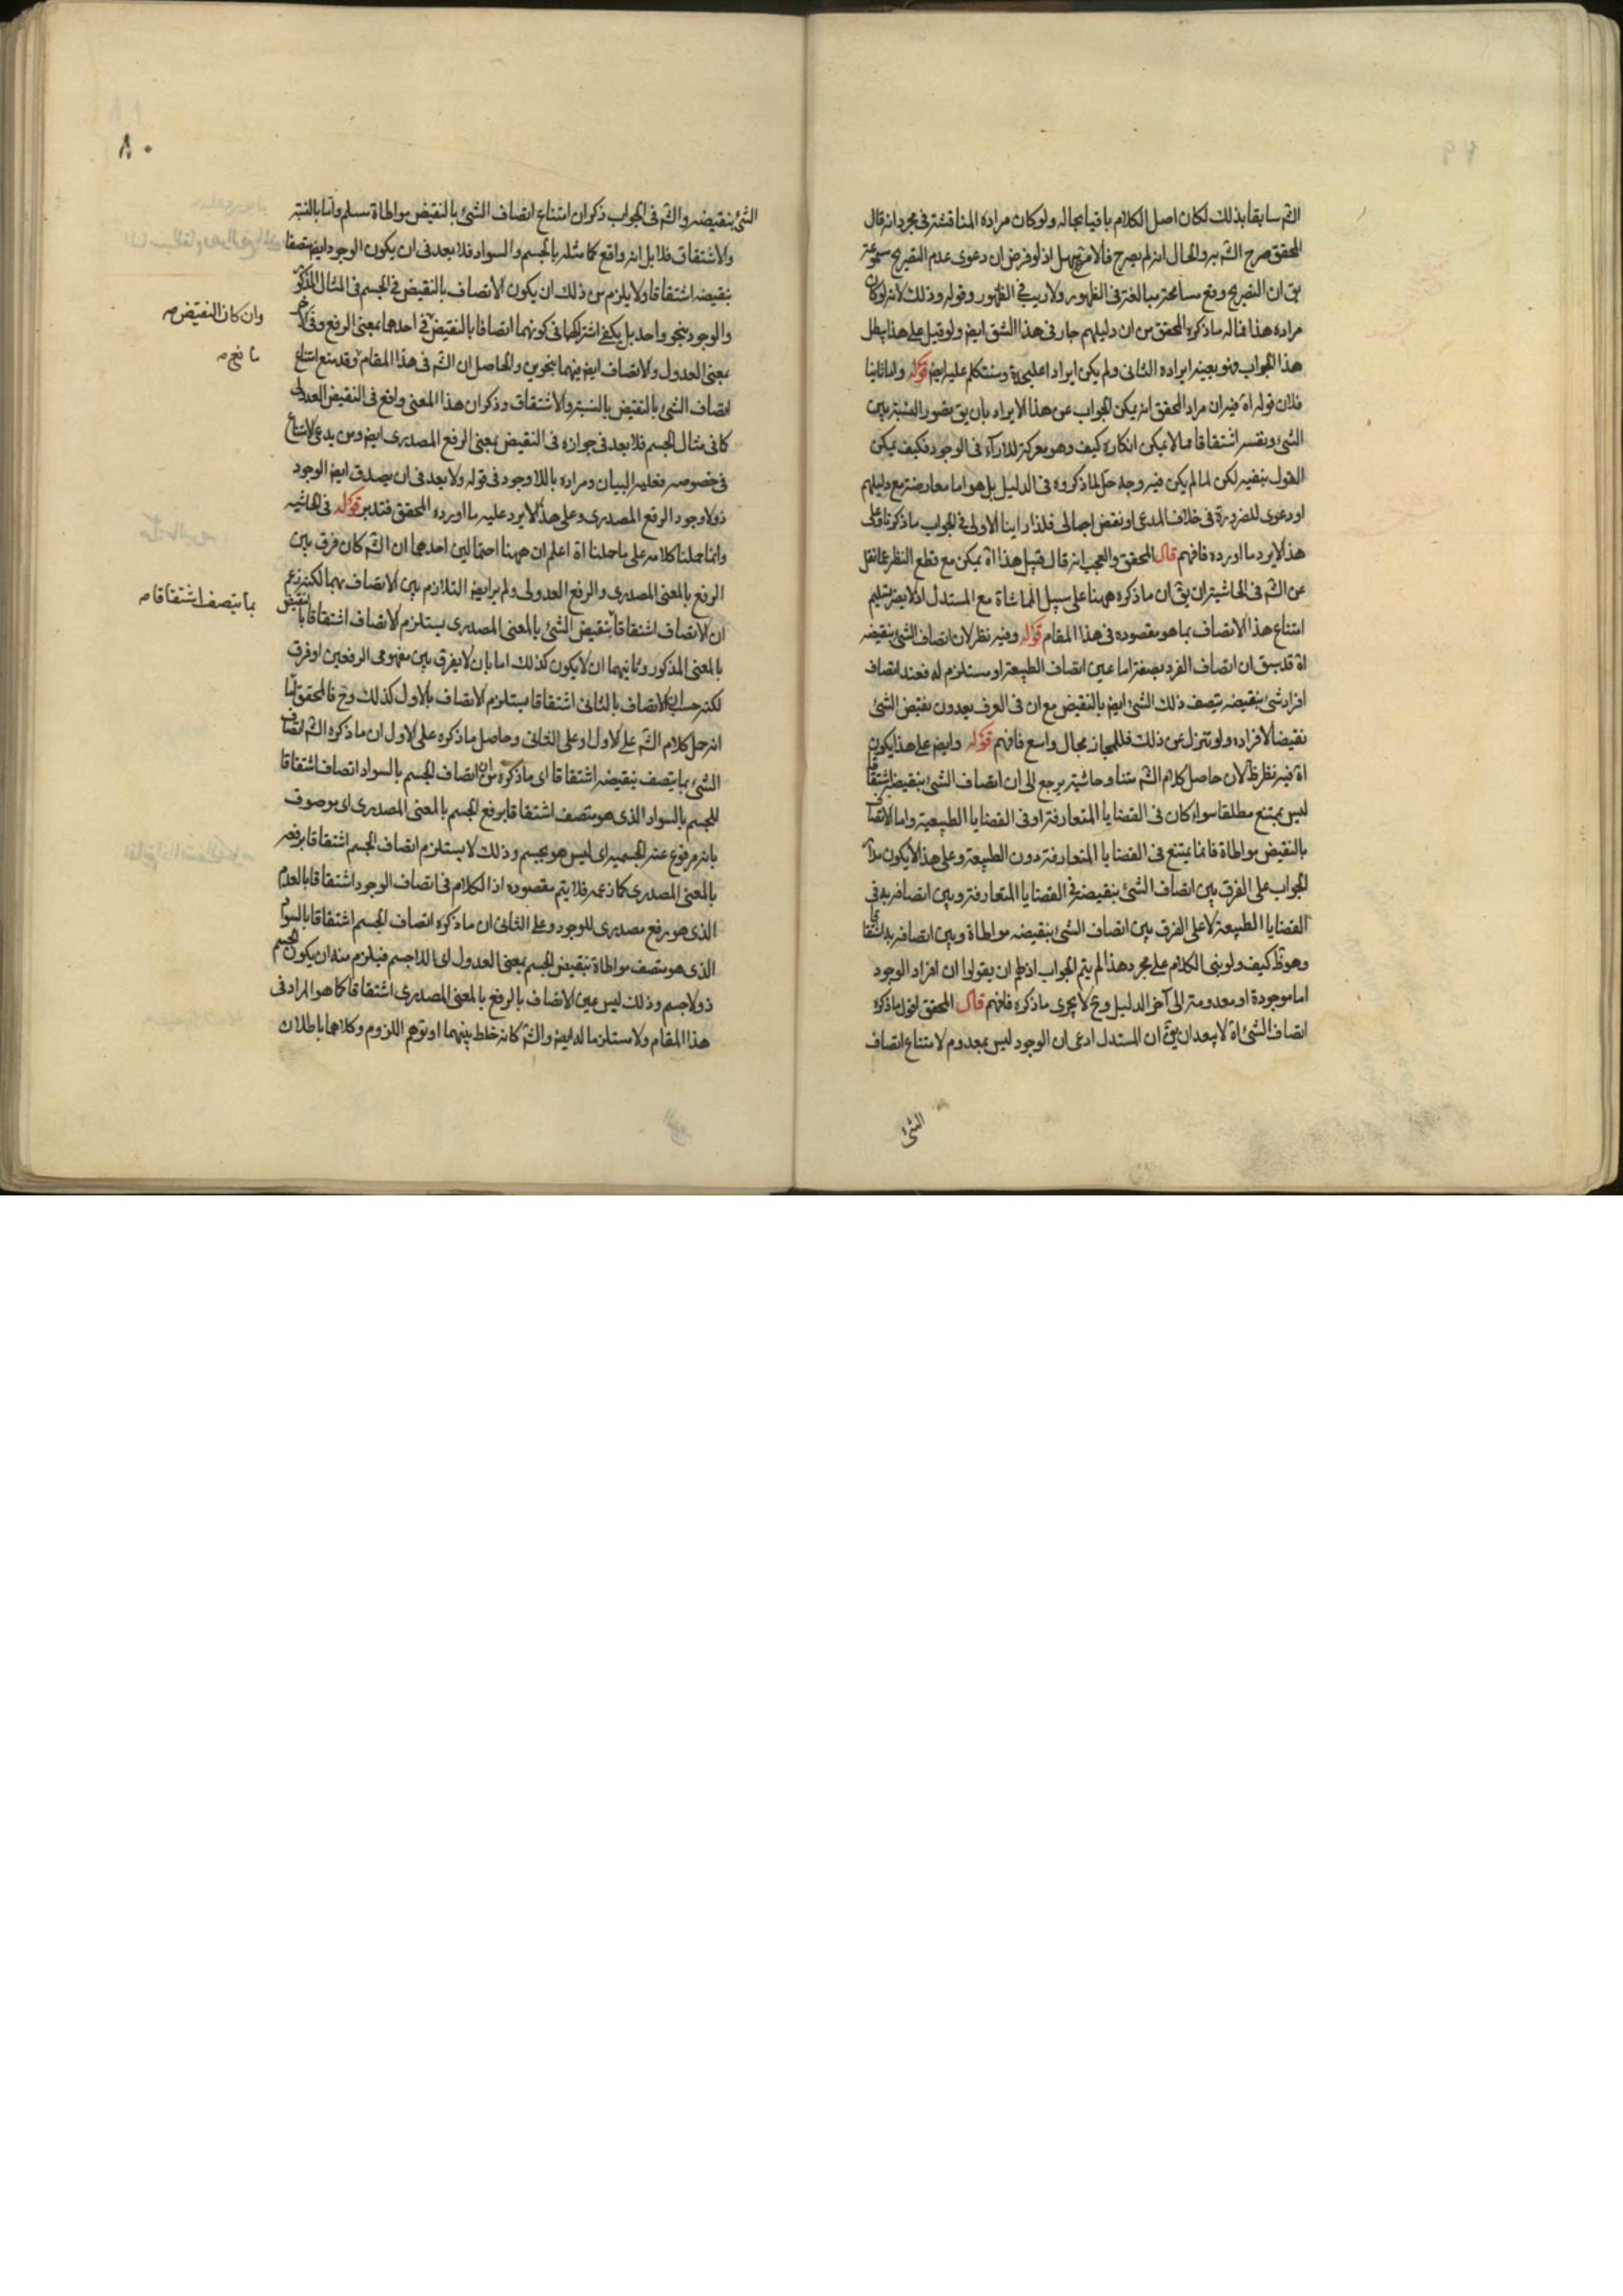 الش سابقا بذلك لكان اصل الكلام باقيا بحاله ولو كان مراده المناقشة فى مجرد انه قال
المحقق صرح الش به والحال انه لم يصرح فالامر سهل اذ لو فرض ان دعوى عدم التصريح
يق ان التصريح وقع مسامحة مبالغة فى الظهور ولا ريب فى الظهور وقوله وذلك لانه لو كان
مراده هذا فماله ما ذكره المحقق من ان دليلهم جار فى هذا الشق ايض ولو قيل على هذا يبطل
هذا الجواب فهو بعينه ايراده الثانى ولم يكن ايرادا عليحدة وسنتكلم عليه ايض قوله واما ثانيا
فلان قوله اة فيه ان مراد المحقق انه يمكن الجواب عن هذا الايراد بان يق تصور النسبة بين
الشئ ونفسه اشتقاقا مما لا يمكن انكاره كيف وهو معركة للاراء فى الوجود فكيف يمكن
القول بنفيه لكن لما لم يكن فيه وجه حل لما ذكروه فى الدليل بل هو اما معارضة مع دليلهم
او دعوى للضرورة فى خلاف المدعى او نقض اجمالى فلذا راينا الاولى فى الجواب ما ذكرنا وعلى
هذا لا يرد ما اورده فافهم قال المحقق والعجب انه قال قبيل هذا اة يمكن مع قطع النظر عما نقل
عن الش فى الحاشية ان يق ان ما ذكره ههنا على سبيل المماشاة مع المستدل اذ لا يضره تسليم
امتناع هذا الاتصاف بما هو مقصوده فى هذا المقام قوله وفيه نظر لان اتصاف الشئ بنقيضه
اة قد يق ان اتصاف الفرد بصفة اما عين اتصاف الطبيعة او مستلزم له فعند اتصاف
افراد شئ بنقيضه يتصف ذلك الشئ ايض بالنقيض مع ان فى العرف يعدون نقيض الشئ
نقيضا لافراده ولو تنزل عن ذلك فللمجاز مجال واسع فافهم قوله وايض على هذا يكون
اة فيه نظر ظ لان حاصل كلام الش متنا وحاشية يرجع الى ان اتصاف الشئ بنقيضه اشتقاقا
ليس بممتنع مطلقا سواء كان فى القضايا المتعارفة او فى القضايا الطبيعية واما الاتصاف
بالنقيض مواطاة فانما يمتنع فى القضايا المتعارفة دون الطبيعة وعلى هذا لا يكون مدار
الجواب على الفرق بين اتصاف الشئ بنقيضه فى القضايا المتعارفة وبين اتصافه به فى
القضايا الطبيعة لا على الفرق بين اتصاف الشئ بنقيضه مواطاة وبين اتصافه به اشتقاقا
وهو ظ كيف ولو بنى الكلام على مجرد هذا لم يتم الجواب اذ لهم ان يقولوا ان افراد الوجود
اما موجودة او معدومة الى آخر الدليل وح لا يجرى ما ذكره فافهم قال المحقق اقول ما ذكره
اتصاف الشئ اة لا يبعد ان يق ان المستدل ادعى ان الوجود ليس بمعدوم لامتناع اتصاف
الشئ
٨٠
الشئ بنقيضه والش فى الجواب ذكر ان امتناع اتصاف الشئ بالنقيض مواطاة مسلم واما بالنسبة
والاشتقاق فلا بل انه واقع كما مثله بالجسم والسواد فلا بعد فى ان يكون الوجود ايض متصفا
بنقيضه اشتقاقا ولا يلزم من ذلك ان يكون الاتصاف بالنقيض فى الجسم فى المثال المذكور
والوجود بنحو واحد بل يكفى اشتراكهما فى كونهما اتصافا بالنقيض فى احدهما بمعنى الرفع وفى الاخر
وان كان النقيض صح
بمعنى العدول والاتصاف ايض فيهما بنحوين والحاصل ان الش فى هذا المقام وقد منع امتناع
اتصاف الشئ بالنقيض بالنسبة والاشتقاق وذكر ان هذا المعنى واقع فى النقيض العدولى
كما فى مثال الجسم فلا بعد فى جوازه فى النقيض بمعنى الرفع المصدرى ايض ومن يدعى الامتناع
فى خصوصه فعليه البيان ومراده باللا وجود فى قوله ولا بعد فى ان يصدق ايض الوجود
ذو لا وجود الرفع المصدرى وعلى هذا لا يرد عليه ما اورده المحقق فتدبر قوله فى الحاشيه
وانما حملنا كلامه على ما حملنا اة اعلم ان ههنا احتمالين احدهما ان الش كان فرق بين
الرفع بالمعنى المصدرى والرفع العدولى ولم ير ايض التلازم بين الاتصاف بهما لكنه زعم
ان الاتصاف اشتقاقا بنقيض الشئ بالمعنى المصدرى يستلزم الاتصاف اشتقاقا بالنقيض
بما يتصف اشتقاقا صح
بالمعنى المذكور وثانيهما ان لا يكون كذلك اما بان لا يفرق بين مفهومى الرفعين او فرق
لكنه حسب ان الاتصاف بالثانى اشتقاقا يستلزم الاتصاف بالاول كذلك وح فالمحقق اما
انه حمل كلام الش على الاول او على الثانى وحاصل ما ذكره على الاول ان ما ذكره الش اتصاف
الشئ بما يتصف بنقيضه اشتقاقا اى ما ذكره من ان اتصاف الجسم بالسواد اتصاف اشتقاقا
للجسم بالسواد الذى هو متصف اشتقاقا برفع الجسم بالمعنى المصدرى اى موصوف
بانه مرفوع عنه الجسمية اى ليس هو بجسم وذلك لا يستلزم اتصاف الجسم اشتقاقا برفعه
بالمعنى المصدرى كما زعمه فلا يتم مقصوده اذ الكلام فى اتصاف الوجود اشتقاقا بالعدم
الذى هو رفع مصدرى للوجود وعلى الثانى ان ما ذكره اتصاف الجسم اشتقاقا بالسواد
الذى هو متصف مواطاة بنقيض الجسم بمعنى العدول اى اللا جسم فيلزم منه ان يكون الجسم
ذو لا جسم وذلك ليس عين الاتصاف بالرفع بالمعنى المصدرى اشتقاقا كما هو المراد فى
هذا المقام ولا مستلزما له ايض والش كانه خلط بينهما او توهم اللزوم وكلاهما باطلان